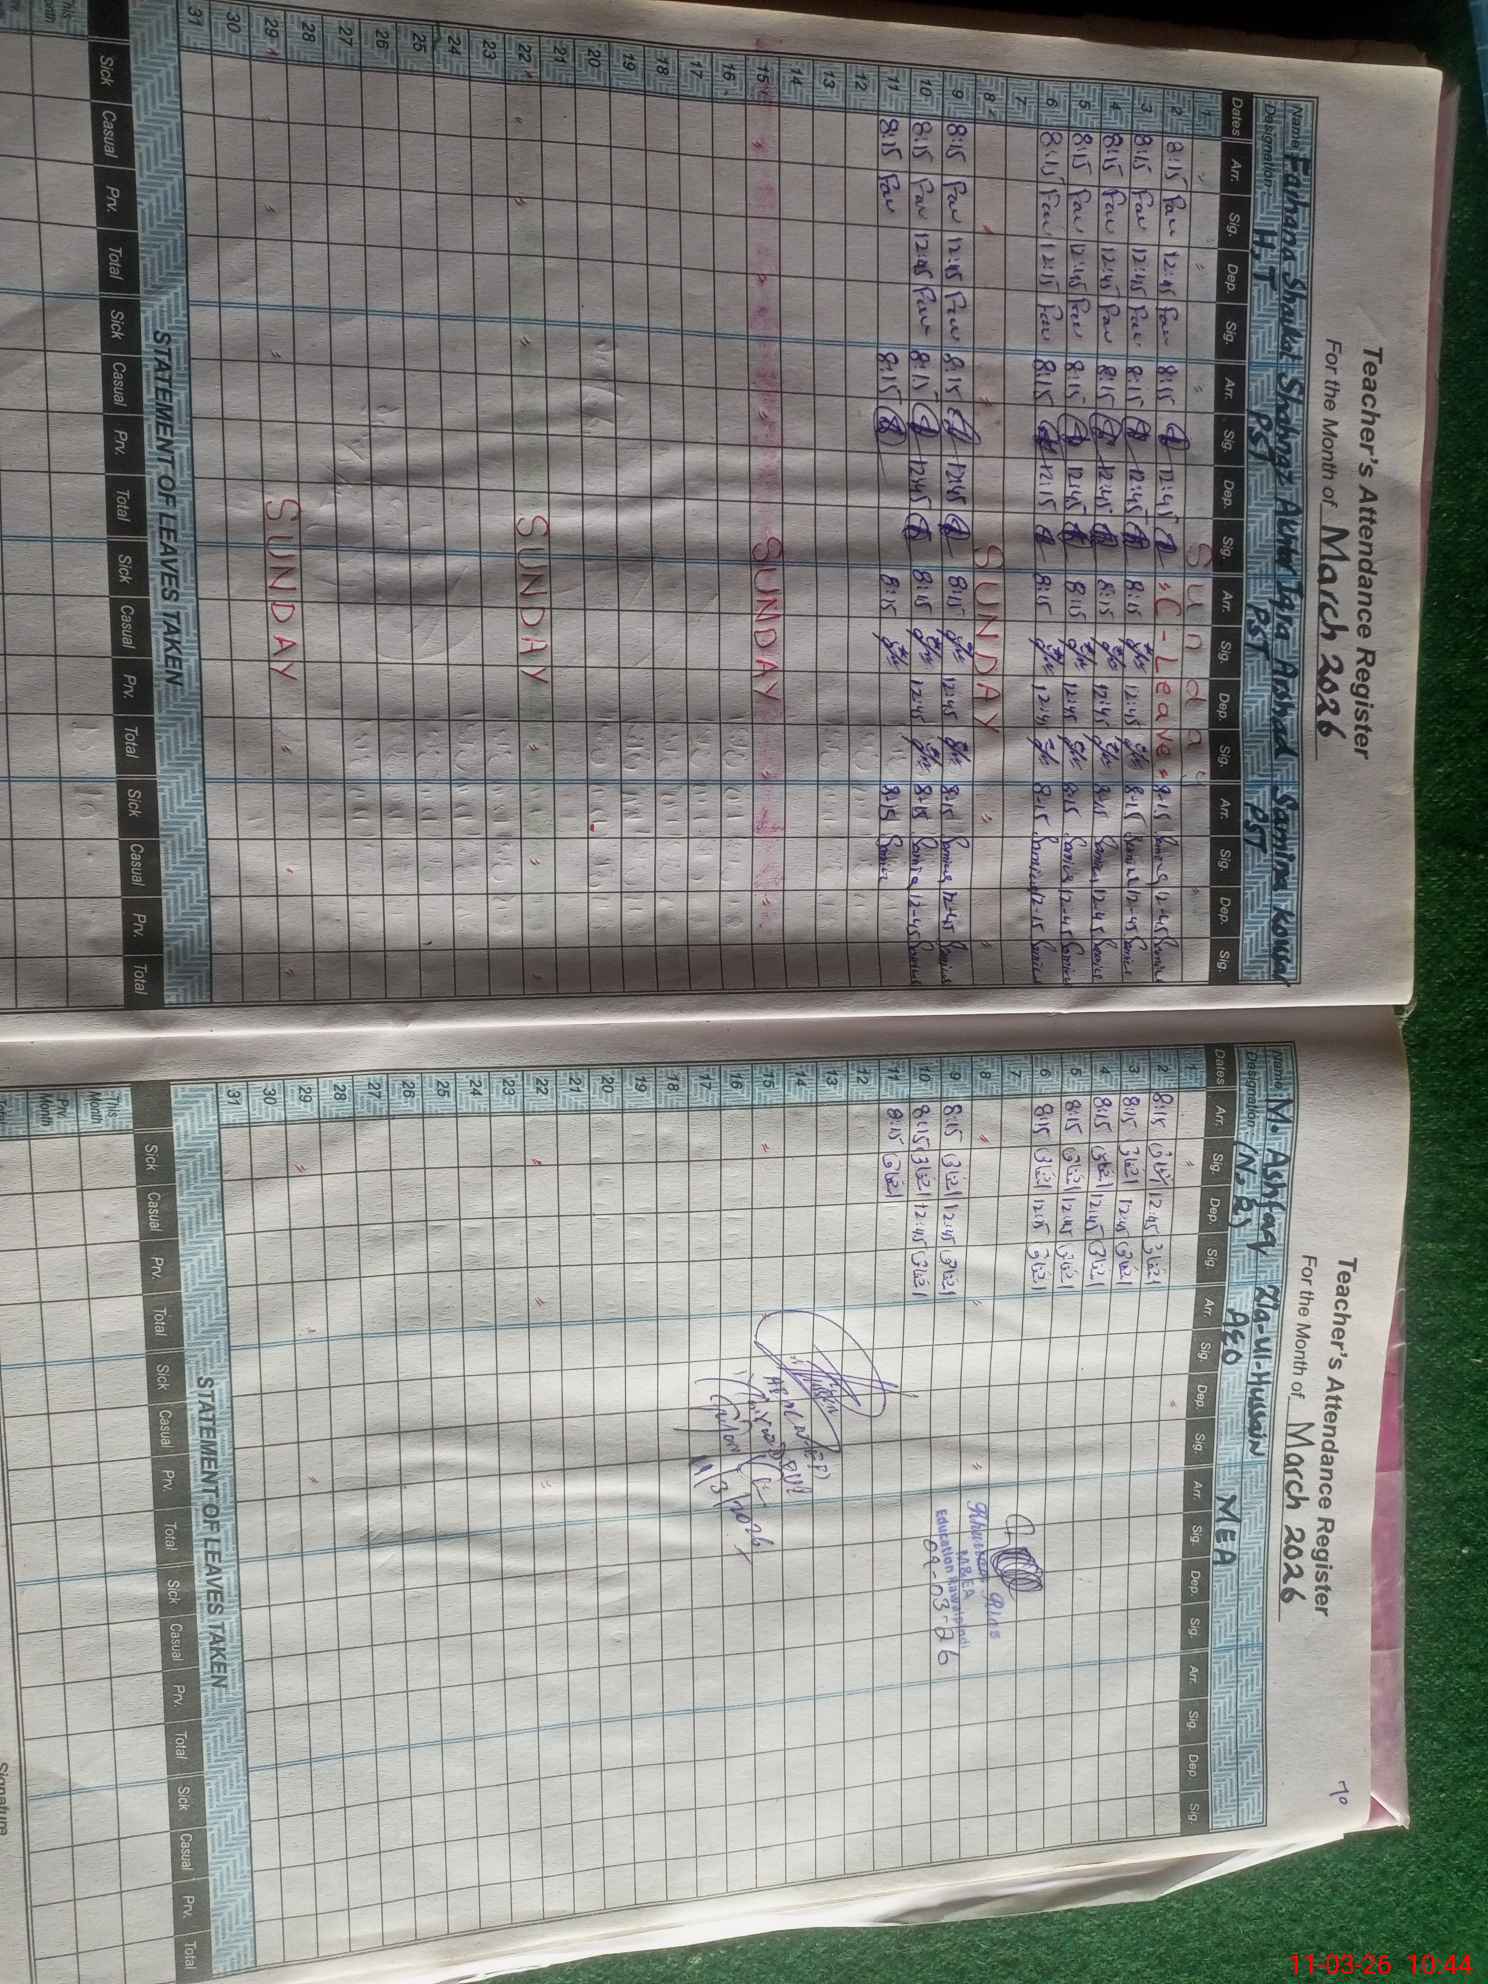 Teacher's Attendance Register
For the Month of March 2026
Name Farhana Shaukat Shahnaz Akhtar Iqra Arshad Samina Kousar
Designation H.T PST PST PST
Dates Arr. Sig. Dep. Sig. Arr. Sig. Dep. Sig. Arr. Sig. Dep. Sig. Arr. Sig. Dep. Sig.
1 Sunday
2 8:15 Far 12:45 Far 8:15 12:45 C-Leave 8-15 Samina 12-45 Samina
3 8:15 Far 12:45 Far 8:15 12:45 8:15 12:45 8-15 Samina 12-45 Samina
4 8:15 Far 12:45 Far 8:15 12:45 8:15 12:45 8-15 Samina 12-45 Samina
5 8:15 Far 12:45 Far 8:15 12:45 8:15 12:45 8-15 Samina 12-45 Samina
6 8:15 Far 12:15 Far 8:15 12:15 8:15 12:45 8-15 Samina 12-15 Samina
7
8 " " SUNDAY " "
9 8:15 Far 12:45 Far 8:15 12:45 8:15 12:45 8-15 Samina 12-45 Samina
10 8:15 Far 12:45 Far 8:15 12:45 8:15 12:45 8-15 Samina 12-45 Samina
11 8:15 Far 8:15 8:15 8-15 Samina
12
13
14
15 " " " SUNDAY " " "
16
17
18
19
20
21
22 " " " SUNDAY " " "
23
24
25
26
27
28
29 " " SUNDAY " " "
30
31
STATEMENT OF LEAVES TAKEN
Sick Casual Prv. Total Sick Casual Prv. Total Sick Casual Prv. Total Sick Casual Prv. Total
This Month
Teacher's Attendance Register
70
For the Month of March 2026
Name M. Ashfaq Zia-ul-Hussain MEA
Designation (N.B) AEO
Dates Arr. Sig. Dep. Sig. Arr. Sig. Dep. Sig. Arr. Sig. Dep. Sig. Arr. Sig. Dep. Sig.
1
2 8:15 اشفاق 12:45 اشفاق
3 8:15 اشفاق 12:45 اشفاق
4 8:15 اشفاق 12:45 اشفاق
5 8:15 اشفاق 12:45 اشفاق
6 8:15 اشفاق 12:15 اشفاق
7
8
9 8:15 اشفاق 12:45 اشفاق
10 8:15 اشفاق 12:45 اشفاق
11 8:15 اشفاق
12
13
14
15
16
17
18
19
20
21
22
23
24
25
26
27
28
29
30
31
M&EA
Education Rawalpindi
09-03-26
11/3/2026
STATEMENT OF LEAVES TAKEN
Sick Casual Prv. Total Sick Casual Prv. Total Sick Casual Prv. Total Sick Casual Prv. Total
This Month
Prv. Month
Total
Signature
11-03-26 10:44